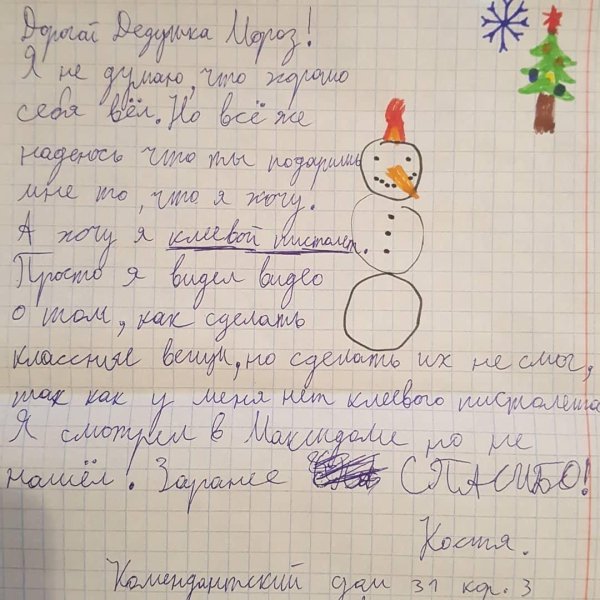 Дорогай Дедушка Мороз!
Я не думаю, что хорошо
себя вёл. Но всё же
надеюсь что ты подаришь
мне то, что я хочу.
А хочу я клеевой пистолет.
Просто я видел видео
о том, как сделать
классные вещи, но сделать их не смог,
так как у меня нет клеевого пистолета
Я смотрел в Максидоме но не
нашёл! Заранее СПАСИБО!
Костя.
Комендантский 31 кор. 3